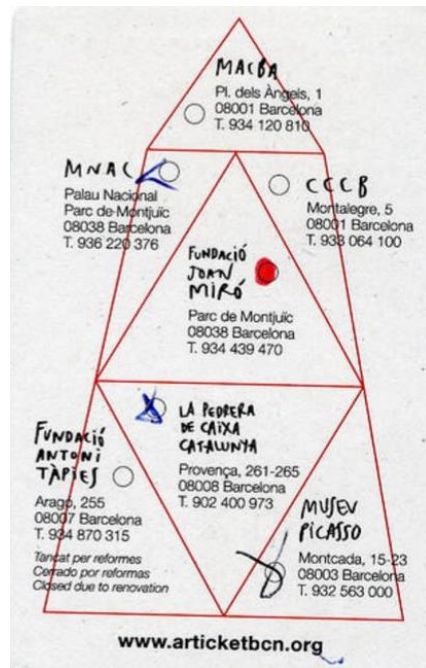 MACBA
Pl. dels Àngels, 1
08001 Barcelona
T. 934 120 810
MNAC
Palau Nacional
Parc de Montjuïc
08038 Barcelona
T. 936 220 376
CCCB
Montalegre, 5
08001 Barcelona
T. 933 064 100
FUNDACIÓ
JOAN
MIRÓ
Parc de Montjuïc
08038 Barcelona
T. 934 439 470
LA PEDRERA
DE CAIXA
CATALUNYA
Provença, 261-265
08008 Barcelona
T. 902 400 973
FUNDACIÓ
ANTONI
TÀPIES
Aragó, 255
08007 Barcelona
T. 934 870 315
Tancat per reformes
Cerrado por reformas
Closed due to renovation
MUSEU
PICASSO
Montcada, 15-23
08003 Barcelona
T. 932 563 000
www.articketbcn.org